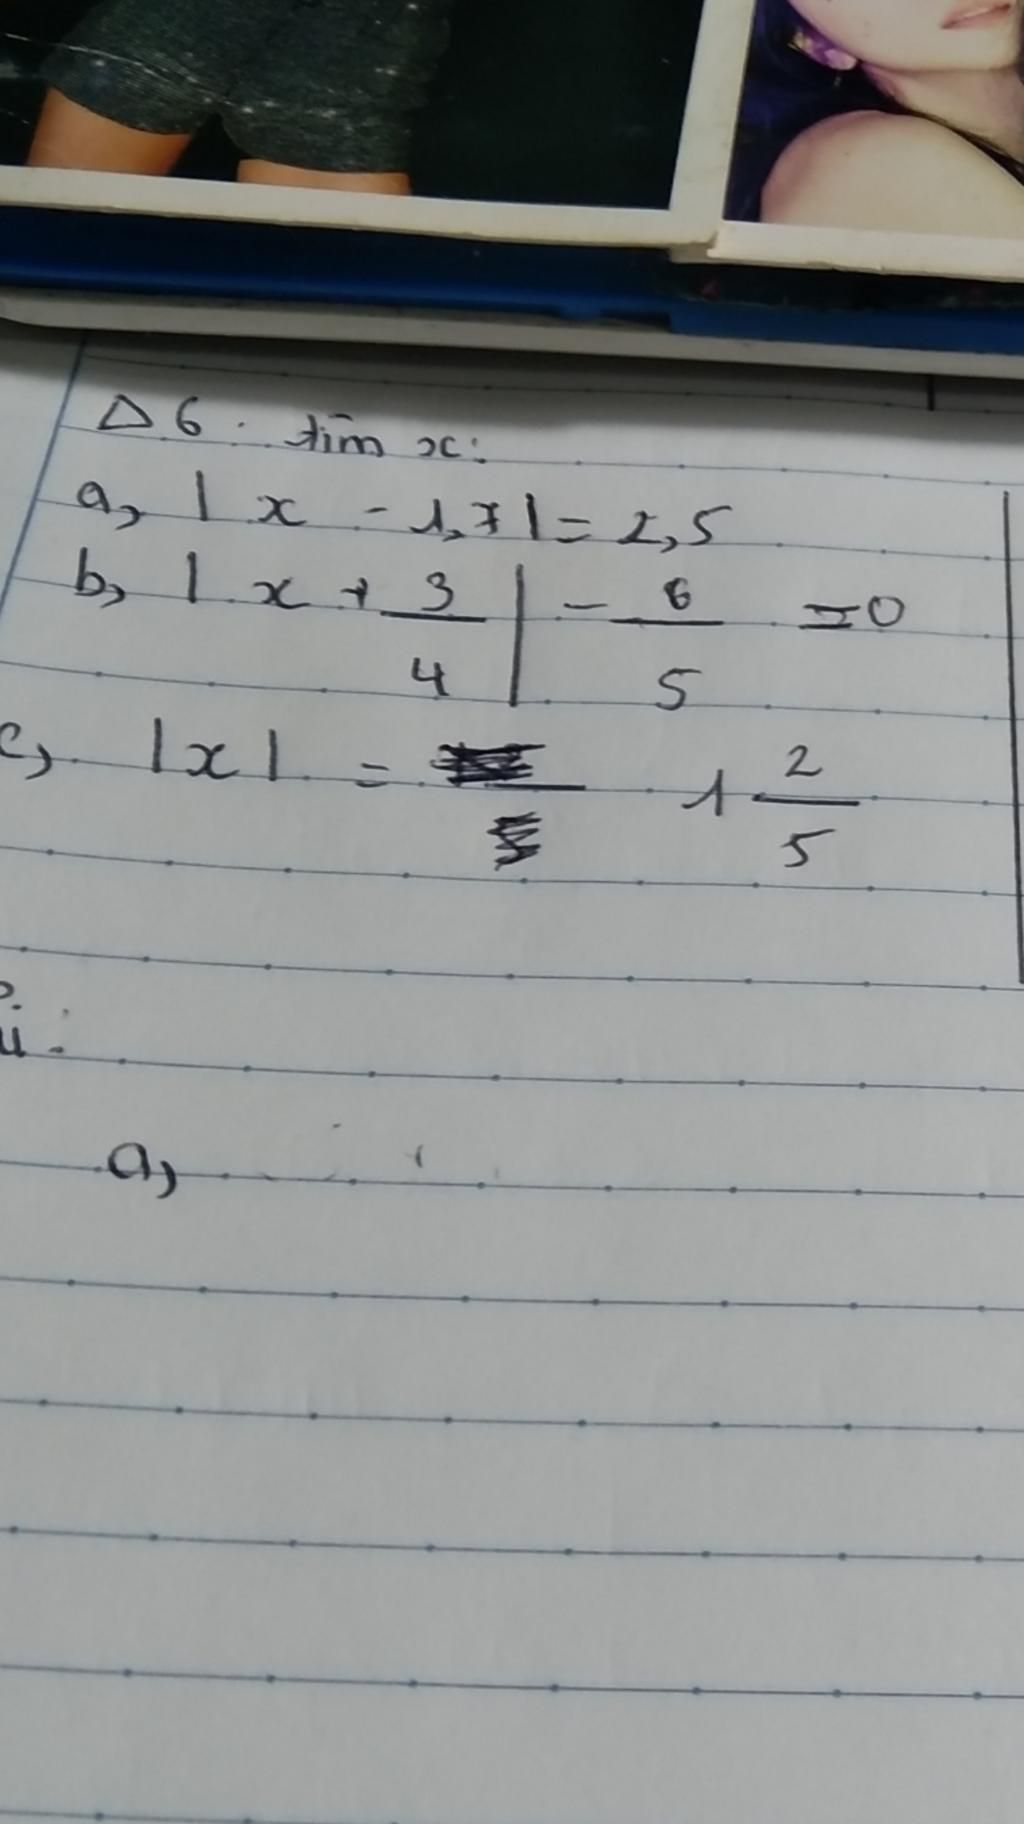 △6. tìm x:
a, |x - 1,7| = 2,5
b, |x + 3/4| - 6/5 = 0
c, |x| = 1 2/5
a,